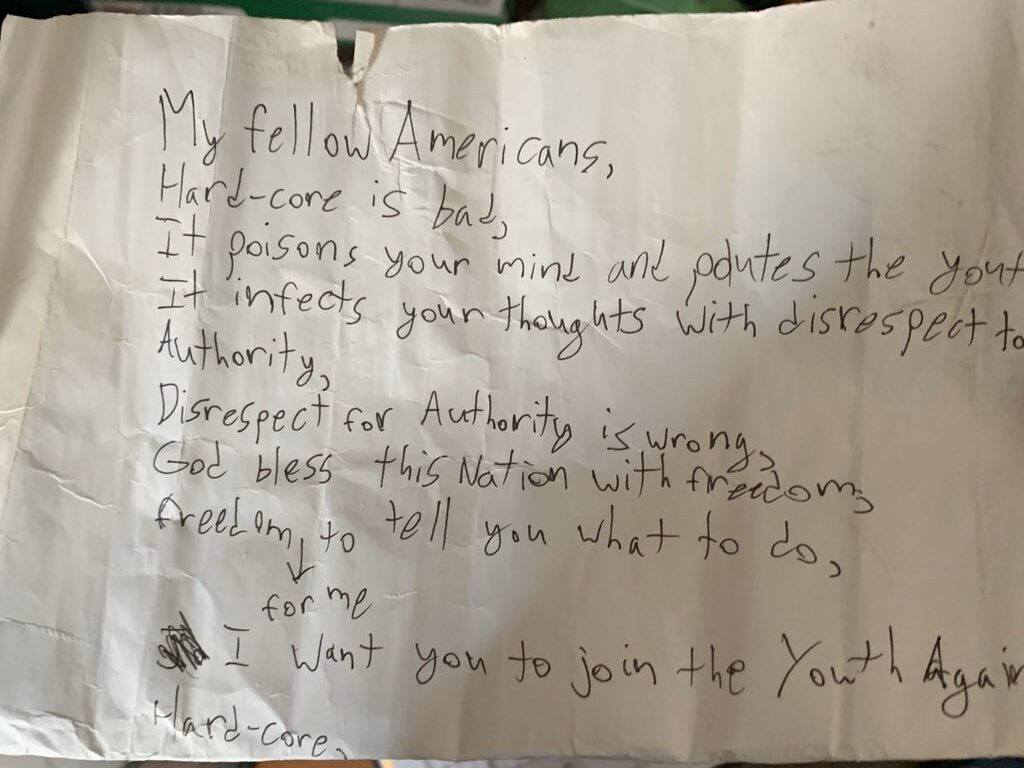 My fellow Americans,
Hard-core is bad,
It poisons your mind and polutes the yout
It infects your thoughts with disrespect to
Authority,
Disrespect for Authority is wrong,
God bless this Nation with freedom,
freedom, to tell you what to do,
for me
I want you to join the Youth Again
Hard-core,